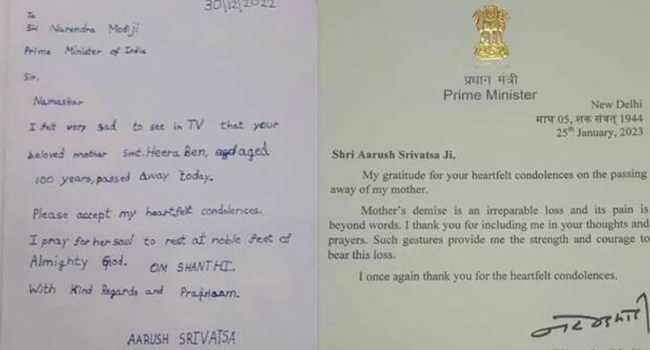 30/12/2022
To
Sri Narendra Modiji
Prime Minister of India
Sir,
Namaskar
I felt very sad to see in TV that your
beloved mother Smt. Heera Ben, aged
100 years, passed away today.
Please accept my heartfelt condolences.
I pray for her soul to rest at noble feet of
Almighty God. OM SHANTHI.
With Kind Regards and Pranaam.
AARUSH SRIVATSA
प्रधान मंत्री
Prime Minister
New Delhi
माघ 05, शक संवत् 1944
25th January, 2023
Shri Aarush Srivatsa Ji,
My gratitude for your heartfelt condolences on the passing
away of my mother.
Mother's demise is an irreparable loss and its pain is
beyond words. I thank you for including me in your thoughts and
prayers. Such gestures provide me the strength and courage to
bear this loss.
I once again thank you for the heartfelt condolences.